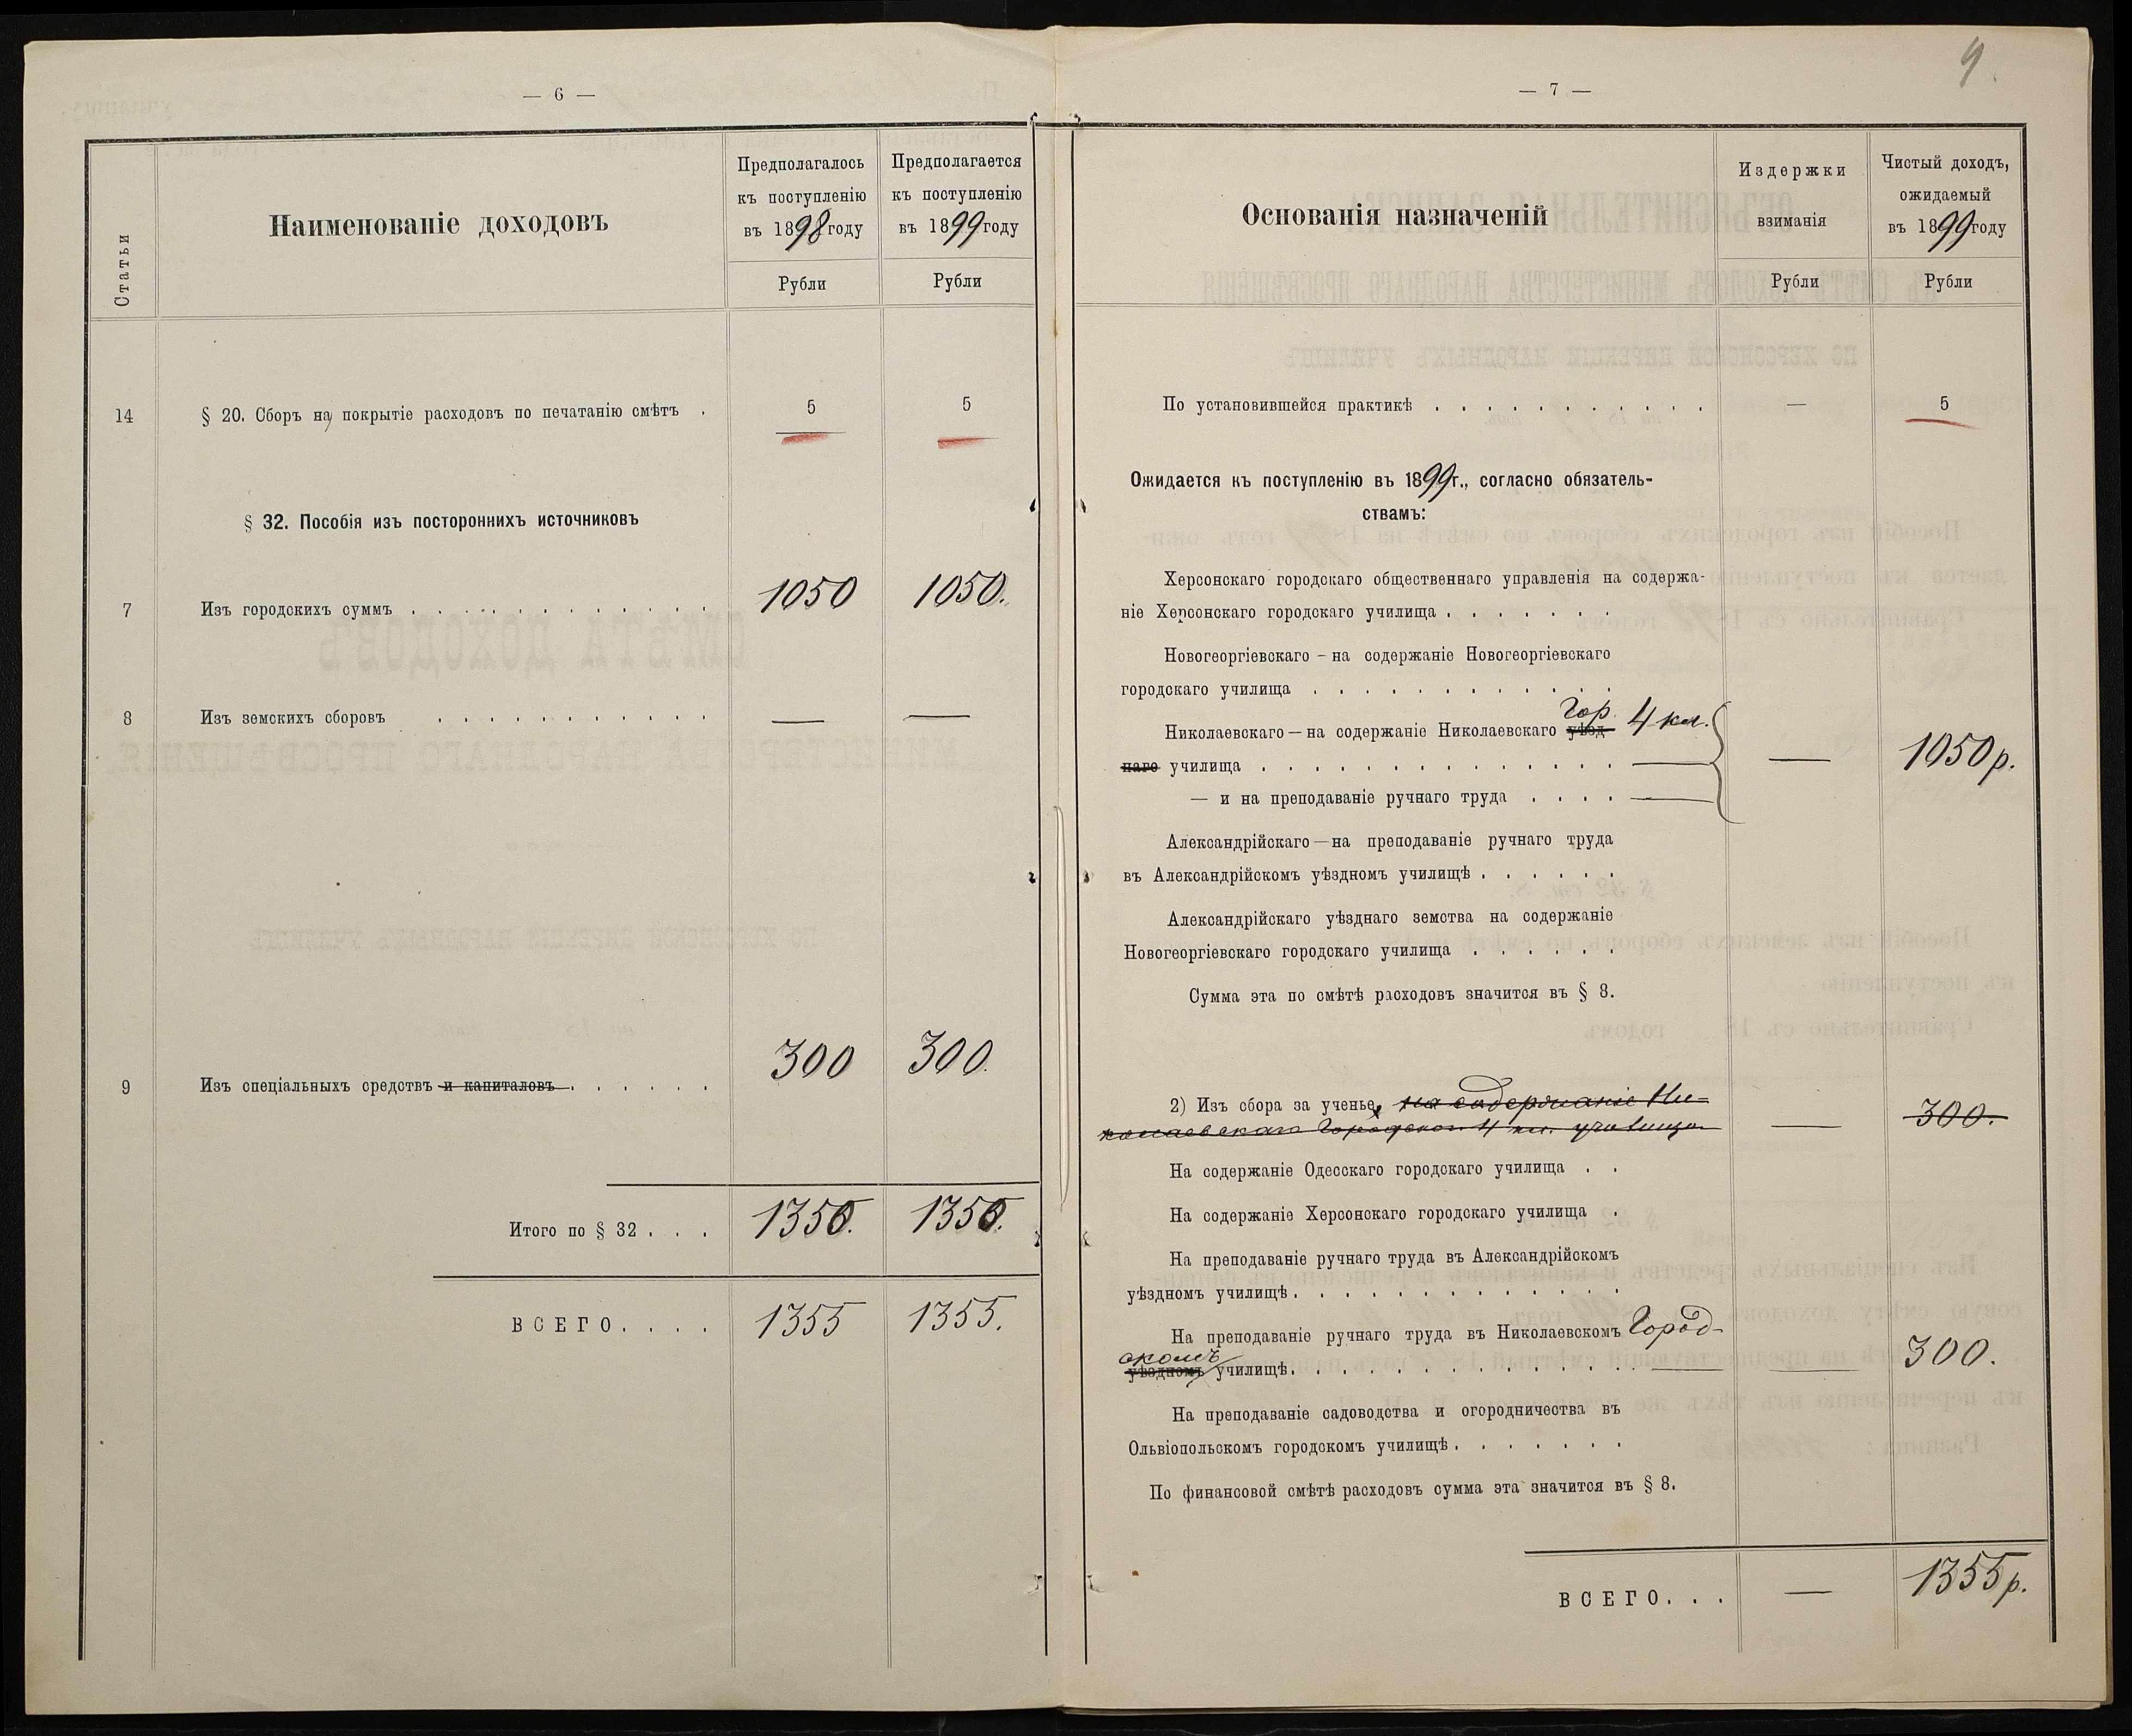 — 6 —
Статьи
Наименованіе доходовъ
Предполагалось
къ поступленію
въ 1898 году
Рубли
Предполагается
къ поступленію
въ 1899 году
Рубли
14 § 20. Сборъ на покрытіе расходовъ по печатанію смѣтъ . 5 5
§ 32. Пособія изъ постороннихъ источниковъ
7 Изъ городскихъ суммъ . . . . . . . . . . . . 1050 1050.
8 Изъ земскихъ сборовъ . . . . . . . . . . . — —
9 Изъ спеціальныхъ средствъ и капиталовъ . . . . . . 300 300.
Итого по § 32 . . . 1350. 1350.
ВСЕГО. . . . 1355 1355.
9
— 7 —
Основанія назначеній
Издержки
взиманія
Рубли
Чистый доходъ,
ожидаемый
въ 1899 году
Рубли
По установившейся практикѣ . . . . . . . . . . . — 5
Ожидается къ поступленію въ 1899 г., согласно обязатель-
ствамъ:
Херсонскаго городскаго общественнаго управленія на содержа-
ніе Херсонскаго городскаго училища . . . . . . .
Новогеоргіевскаго – на содержаніе Новогеоргіевскаго
городскаго училища . . . . . . . . . . . .
Николаевскаго — на содержаніе Николаевскаго уѣзд- Гор. 4 кл.
наго училища . . . . . . . . . . . . . . — — 1050 р.
— и на преподаваніе ручнаго труда . . . . —
Александрійскаго — на преподаваніе ручнаго труда
въ Александрійскомъ уѣздномъ училищѣ . . . . . .
Александрійскаго уѣзднаго земства на содержаніе
Новогеоргіевскаго городскаго училища . . . . . .
Сумма эта по смѣтѣ расходовъ значится въ § 8.
2) Изъ сбора за ученье, на содержаніе Ни-
колаевскаго Городског. 4 кл. училища — 300.
На содержаніе Одесскаго городскаго училища . .
На содержаніе Херсонскаго городскаго училища .
На преподаваніе ручнаго труда въ Александрійскомъ
уѣздномъ училищѣ . . . . . . . . . . . . .
На преподаваніе ручнаго труда въ Николаевскомъ Город-
скомъ
уѣздномъ училищѣ . . . . . . . . . . . . . — — 300.
На преподаваніе садоводства и огородничества въ
Ольвіопольскомъ городскомъ училищѣ . . . . . . .
По финансовой смѣтѣ расходовъ сумма эта значится въ § 8.
ВСЕГО. . . — 1355 р.